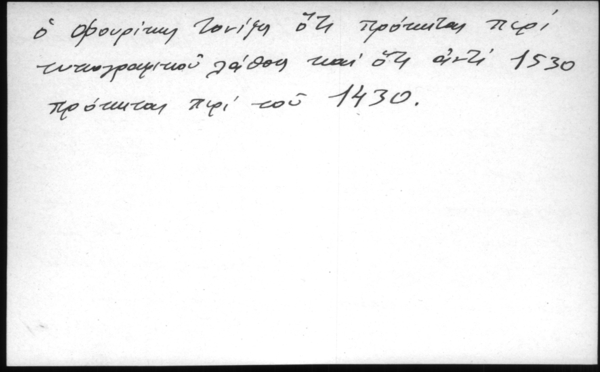 ὁ Σφουρίκης τονίζει ὅτι πρόκειται περί
τυπογραφικοῦ λάθους καί ὅτι ἀντί 1530
πρόκειται περί τοῦ 1430.